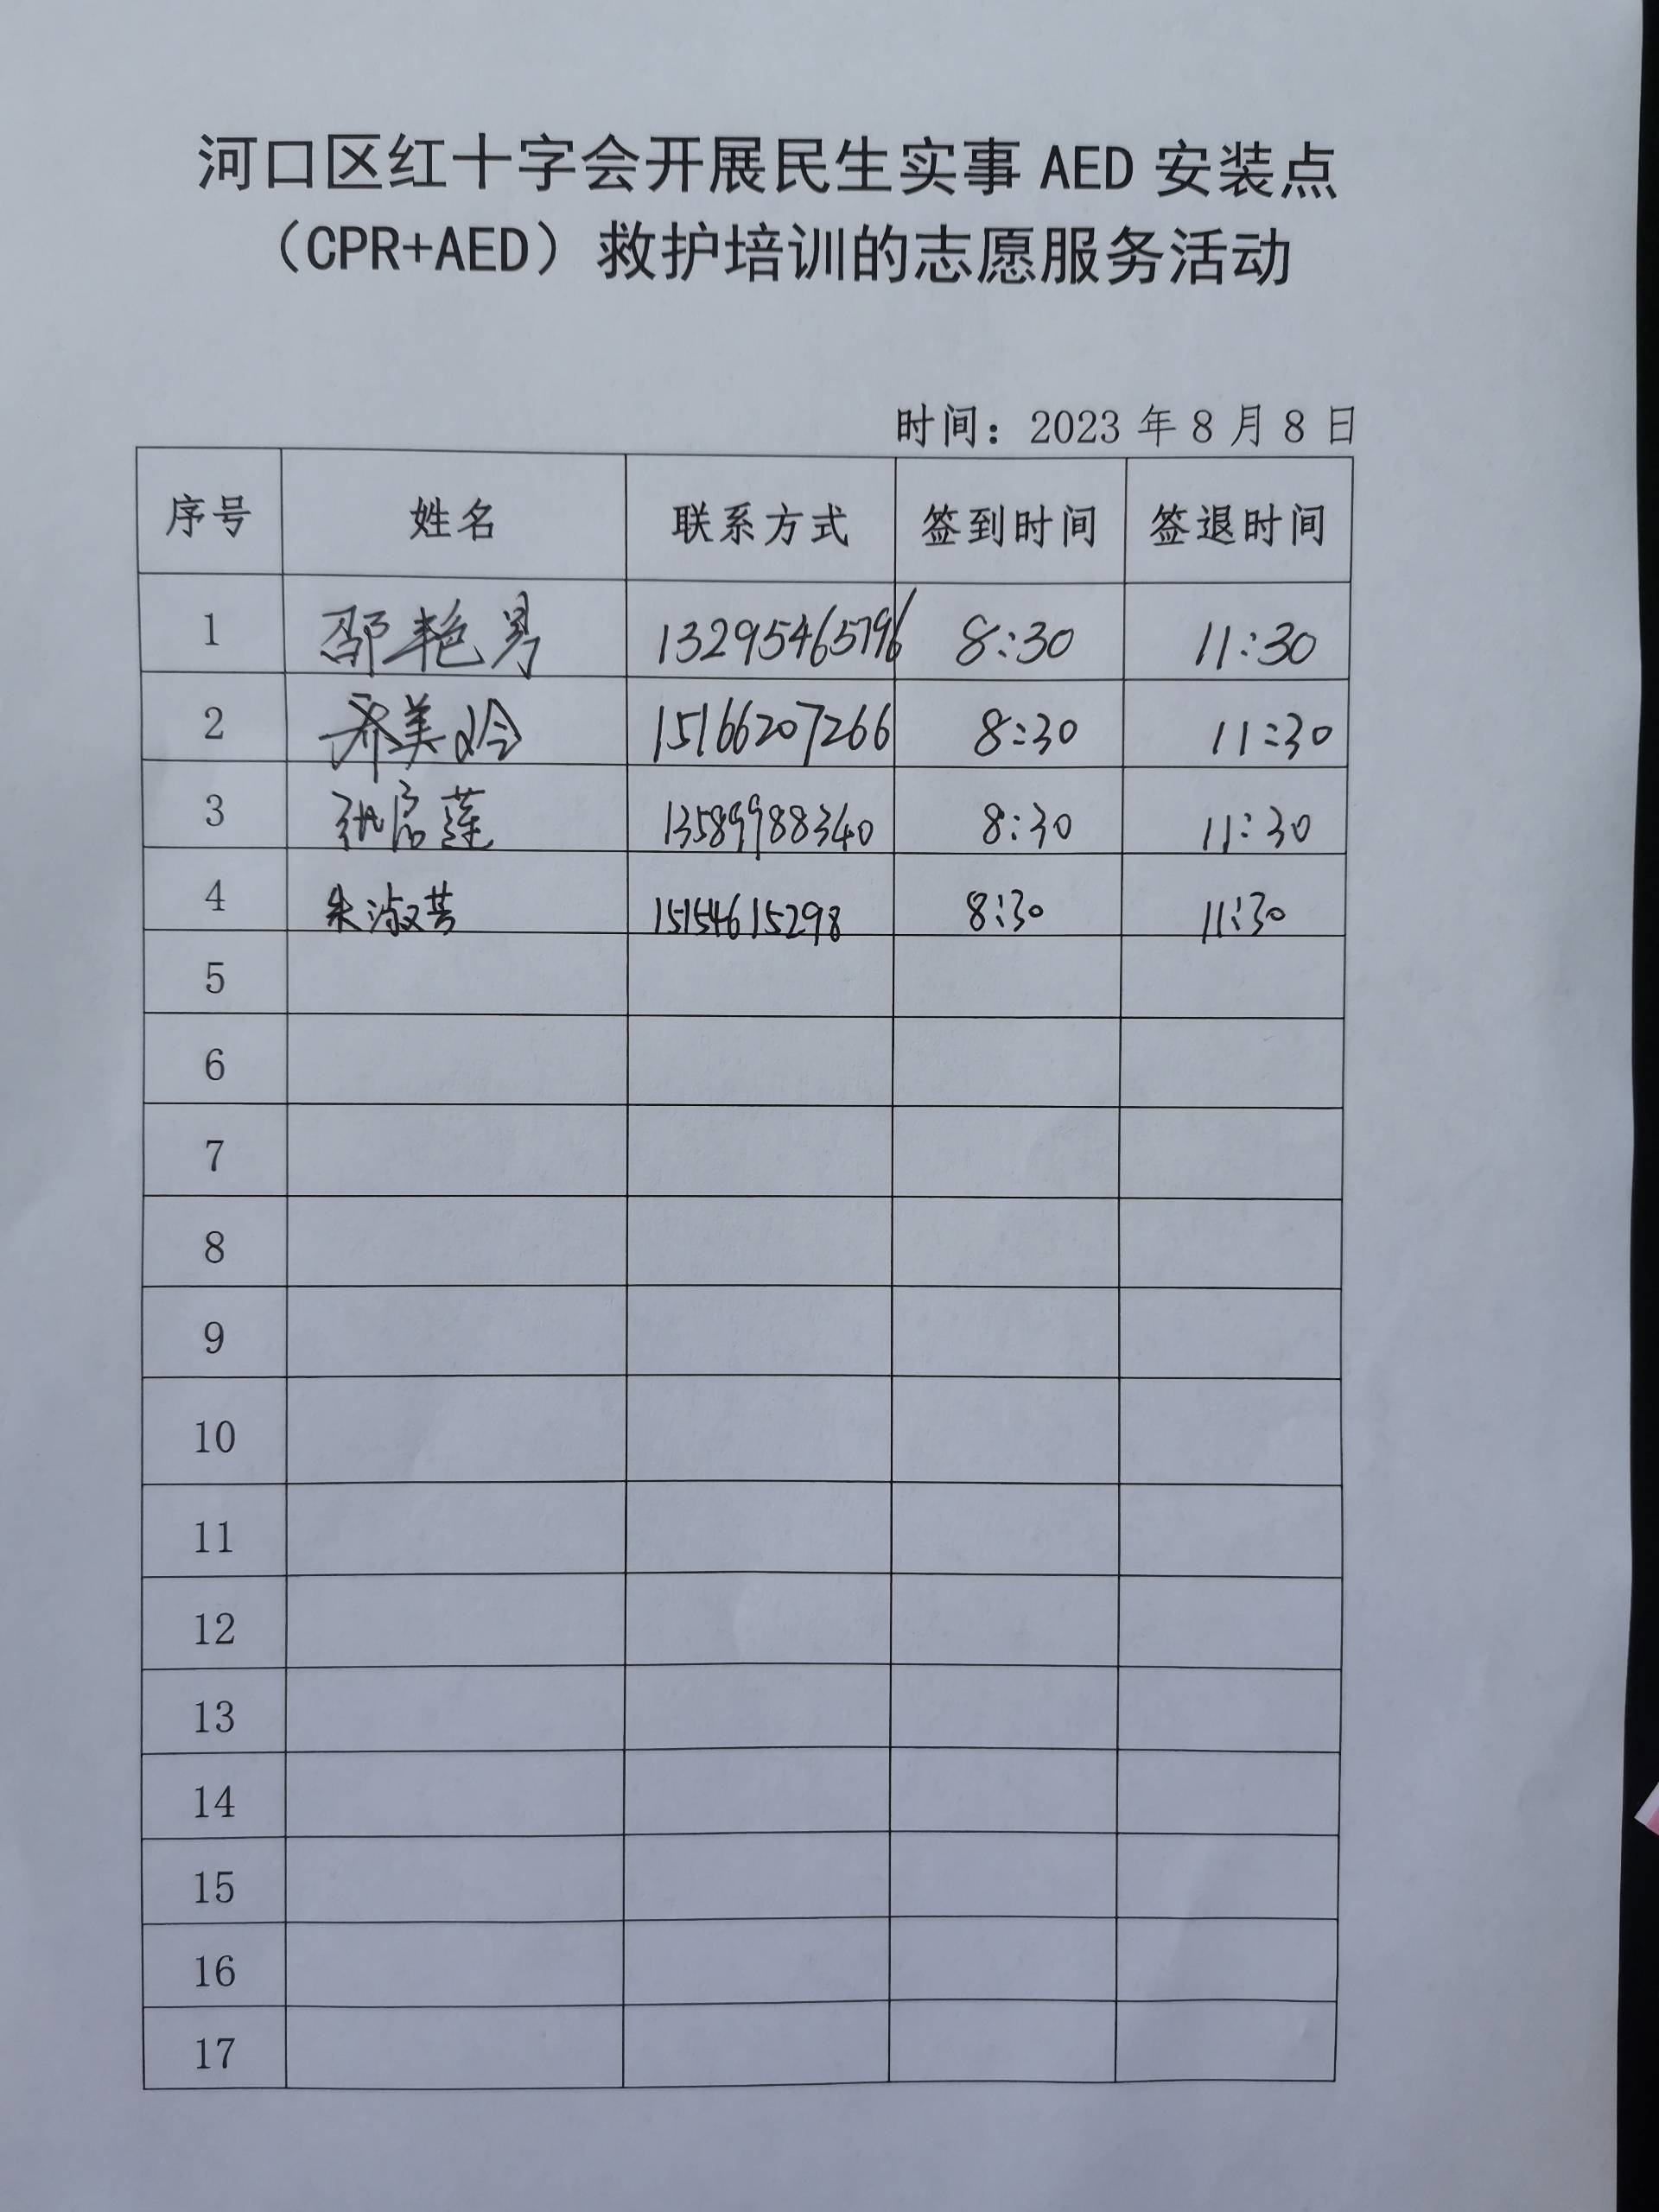 河口区红十字会开展民生实事 AED 安装点
（CPR+AED）救护培训的志愿服务活动
时间：2023 年 8 月 8 日
序号 姓名 联系方式 签到时间 签退时间
1 邵艳男 13295465796 8:30 11:30
2 乔美玲 15166207266 8:30 11:30
3 莲 13589988340 8:30 11:30
4 朱淑芸 15154615298 8:30 11:30
5
6
7
8
9
10
11
12
13
14
15
16
17